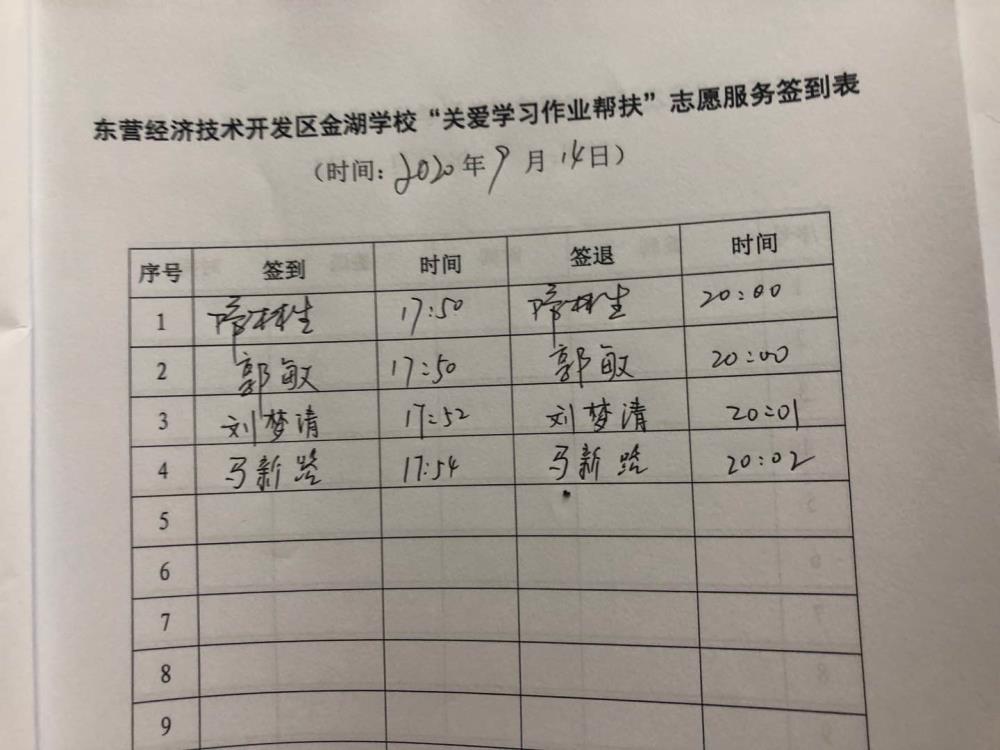 东营经济技术开发区金湖学校“关爱学习作业帮扶”志愿服务签到表
（时间：2020年9月14日）
序号 签到 时间 签退 时间
1 17:50 20:00
2 郭敏 17:50 郭敏 20:00
3 刘梦清 17:52 刘梦清 20:01
4 马新路 17:54 马新路 20:02
5
6
7
8
9